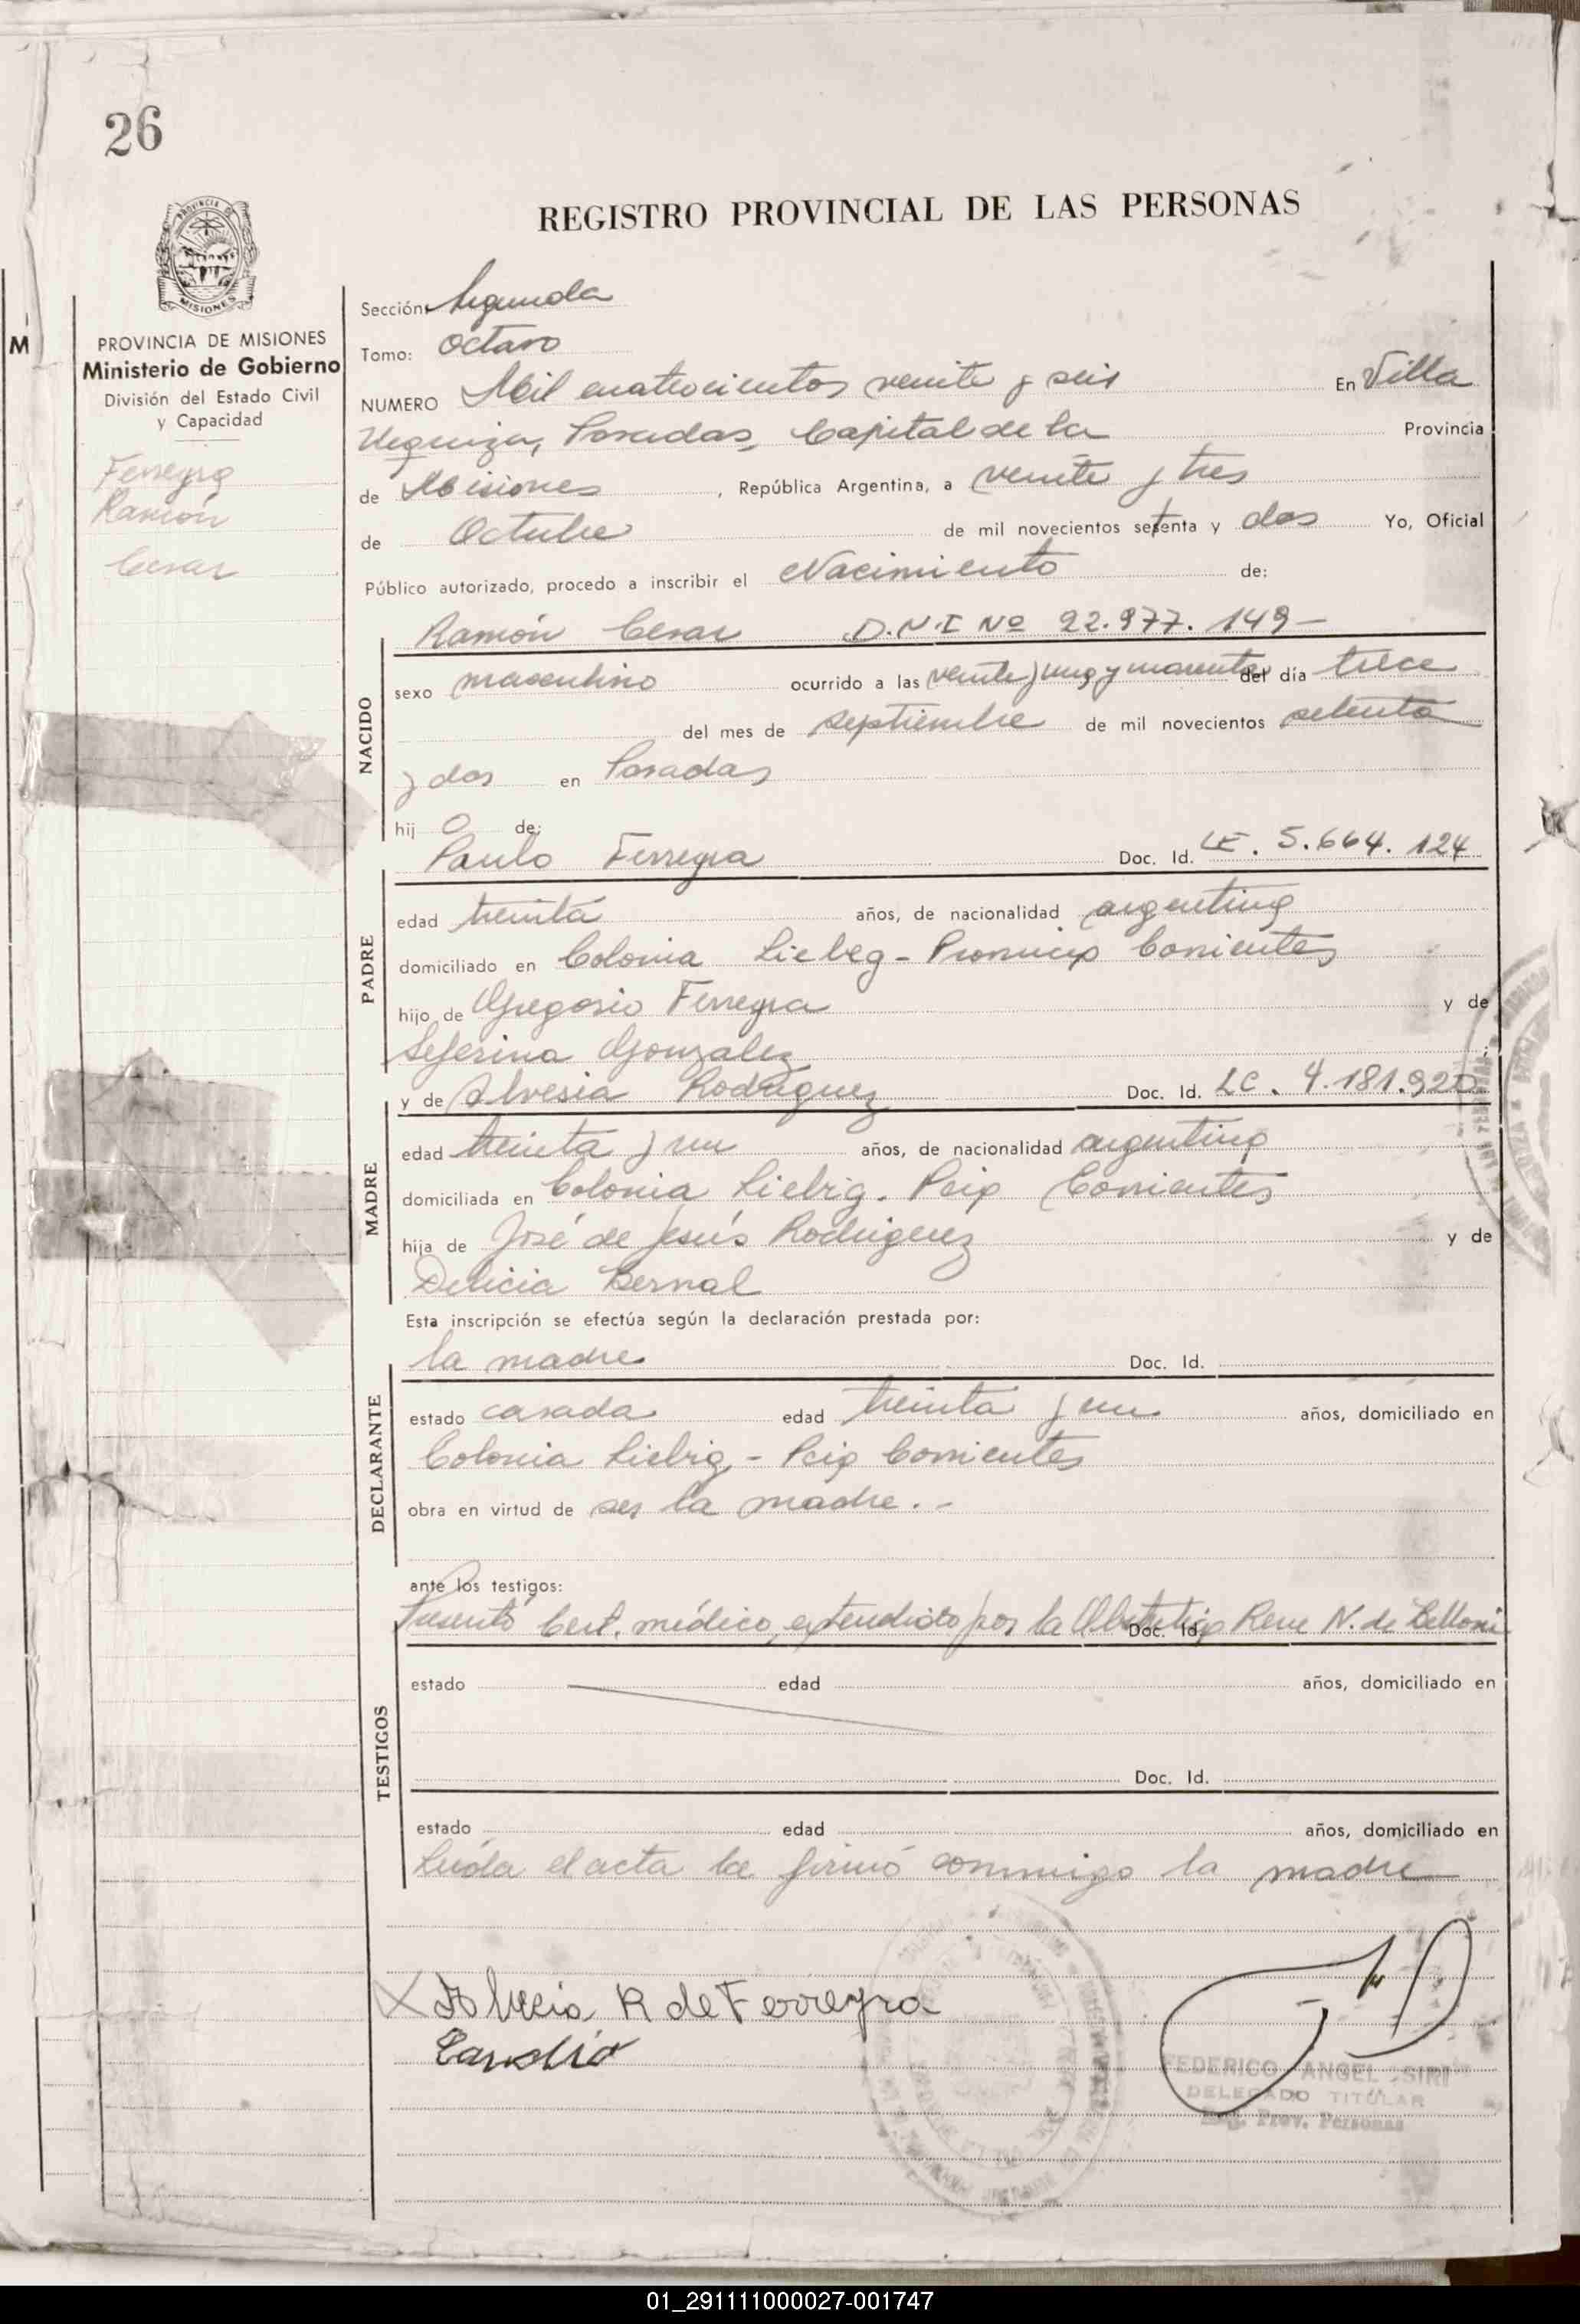 26
REGISTRO PROVINCIAL DE LAS PERSONAS
PROVINCIA DE
MISIONES
PROVINCIA DE MISIONES
Ministerio de Gobierno
División del Estado Civil
y Capacidad
Ferreyra
Ramón
Cesar
M
Sección: Segunda
Tomo: Octavo
NUMERO Mil cuatrocientos veinte y seis En Villa
Urquiza, Posadas, Capital de la Provincia
de Misiones, República Argentina, a veinte y tres
de Octubre de mil novecientos setenta y dos Yo, Oficial
Público autorizado, procedo a inscribir el Nacimiento de:
Ramón Cesar D.N.I Nº 22.977.149-
NACIDO
sexo masculino ocurrido a las veinte y una y cuarenta del día trece
del mes de septiembre de mil novecientos setenta
y dos en Posadas
hijo de:
Paulo Ferreyra Doc. Id. LE. 5.664.124
PADRE
edad treinta años, de nacionalidad argentina
domiciliado en Colonia Liebeg - Provincia Corrientes
hijo de Gregorio Ferreyra y de
Seferina Gonzalez;
y de Alvesia Rodriguez Doc. Id. LC. 4.181.920
MADRE
edad treinta y un años, de nacionalidad argentina
domiciliada en Colonia Liebig. Pcia Corrientes
hija de José de Jesús Rodriguez y de
Delicia Bernal
Esta inscripción se efectúa según la declaración prestada por:
la madre Doc. Id.
DECLARANTE
estado casada edad treinta y un años, domiciliado en
Colonia Liebig - Pcia Corrientes
obra en virtud de ser la madre.-
ante los testigos:
Presentó Cert. médico, extendido por la Obstetriz Rene N. de Belloni
Doc. Id.
TESTIGOS
estado edad años, domiciliado en
Doc. Id.
estado edad años, domiciliado en
Leída el acta la firmó conmigo la madre
X R de Ferreyra
FEDERICO ANGEL SIRI
DELEGADO TITULAR
Reg. Prov. Personas
01_291111000027-001747